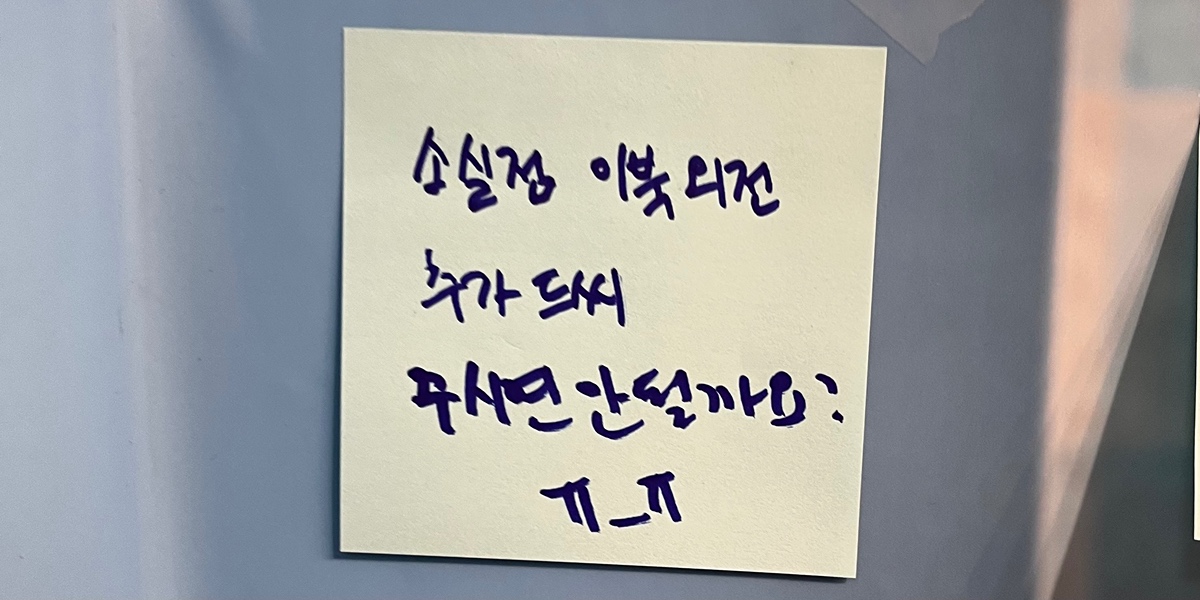 소실점 이북 외전
추가 드씨
주시면 안될까요?
ㅠ_ㅠ